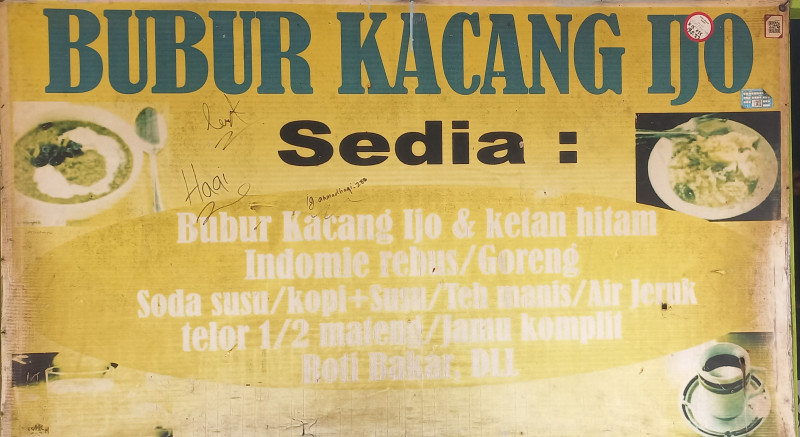 BUBUR KACANG IJO
Sedia :
Hagi
Bubur Kacang Ijo & ketan hitam
Indomie rebus/Goreng
Soda susu/kopi+Susu/Teh manis/Air Jeruk
telor 1/2 mateng/Jamu komplit
Roti Bakar, DLL